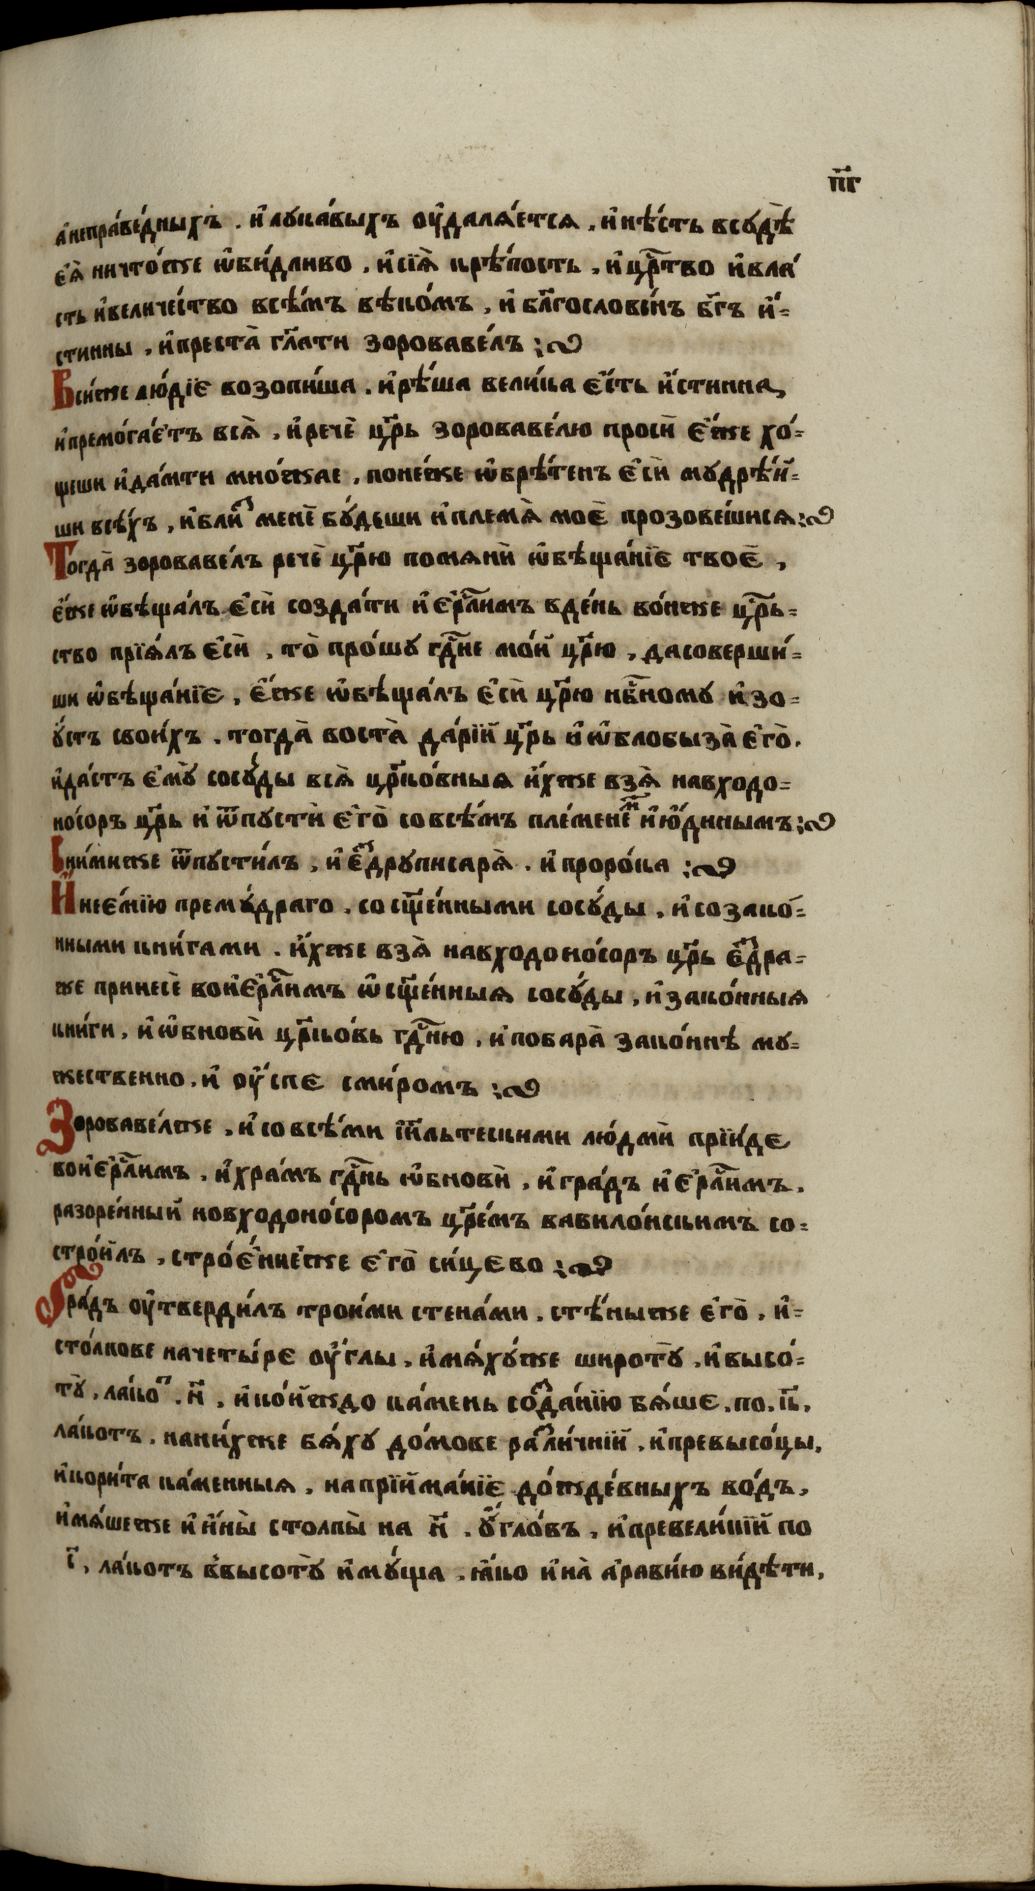 п҃г
а҆непра́ведныхъ . и҆лука́выхъ ѹ҆даля́етсѧ , и҆нѣ́сть всудѣ̀
є҆ѧ̀ ничто́же ѡ҆би́дливо , и҆сїѧ̀ крѣ́пость , и҆ цр҃тво и҆вла́
сть и҆вели́чество всѣ́мъ вѣко́мъ , и҆ бл҃гослове́нъ бг҃ъ и҆́-
стинны , и҆преста̀ гл҃ати зорававе́лъ ;
Вси́же лю́дїє возопи́ша . и҆рѣ́ша вели́ка є҆́сть и҆́стинна,
и҆премога́єтъ всѧ̀ , и҆речѐ цр҃ь зоровавѐлю просѝ є҆́же хо́-
щеши и҆да́мти мно́жае , поне́же ѡ҆брѣ́тенъ є҆сѝ мудрѣ́й-
ши всѣ́хъ , и҆блиⷥ менѐ бу́деши и҆племѧ̀ моѐ прозове́шисѧ ;
Тогда̀ зоровавѐлъ речѐ цр҃ю помѧнѝ ѡ҆бѣща́нїє твоѐ ,
є҆́же ѡ҆бѣща́лъ є҆сѝ созда́ти и҆є҆рл҃имъ вде́нь во́ньже цр҃ь-
ство прїѧ́лъ є҆сѝ , то̀ прошу̀ гд҃не мо́й цр҃ю , дасоверши́-
ши ѡ҆бѣща́нїє , є҆́же ѡ҆бѣща́лъ є҆сѝ цр҃ю нб҃ному и҆зо-
у҆́стъ свои́хъ . тогда̀ воста̀ да́рїй цр҃ь и҆ ѡ҆блобыза̀ є҆го̀ .
и҆да́стъ є҆му̀ сосу́ды всѧ̀ цр҃ко́вныѧ и҆́хже взѧ̀ навходо-
но́соръ цр҃ь и҆ ѿпустѝ є҆го̀ совсѣ́мъ пле́менеⷨ и҆ю҆́динымъ ;
Сни́миже ѿпусти́лъ , и҆ є҆́ⷥдру писарѧ̀ . и҆ проро́ка ;
И҆ неє҆мі́ю прему́драго . сосщ҃е́нными сосу́ды , и҆созако́-
нными кни́гами . и҆́хже взѧ̀ навходоно́соръ цр҃ь є҆́ⷥдра-
же принесѐ вои҆є҆рл҃имъ ѡ҆сщ҃е́нныѧ сосу́ды , и҆зако́нныѧ
кни́ги , и҆ ѡ҆бновѝ цр҃ко́вь гд҃ню , и҆побара̀ зако́ннѣ му-
жественно . и҆ ѹ҆́спє сми́ромъ ;
Зоровавѐлже , и҆совсѣ́ми і҆и҃льтескими людмѝ прїи́де
вои҆є҆рл҃имъ . и҆хра́мъ гд҃нь ѡ҆бновѝ , и҆гра́дъ и҆є҆рл҃имъ .
разоре́нный новходоно́соромъ цр҃е́мъ вавило́нскимъ со-
стро́илъ , строє҆́ниеже є҆го̀ си́цєво ;
Гра́дъ ѹ҆тверди́лъ трои́ми стена́ми . стѣ́ныже є҆го̀ . и҆-
сто́лкове начеты́рє ѹ҆́глы . и҆мѧ́ху́же широту̀ . и҆высо-
ту̀ . ла́коⷮ . н҃ , и҆ ко́йждо ка́мень соⷥда́нїю бѧ́шє . по . к҃ .
ла́котъ . нани́хже бѧ́ху до́мове раⷥли́чнїй . и҆превысо́цы,
и҆кори́та ка́менныѧ . напрїима́нїє дождѐвныхъ во́дъ ,
и҆мѧ́шеже и҆ и҆ны̀ столпы̀ на н҃ . у҆гло́въ , и҆превели́кїй по
і҃ . ла́котъ ввысоту̀ и҆му́ща . ꙗ҆́ко и҆ на̀ а҆рави́ю ви́дѣти ,